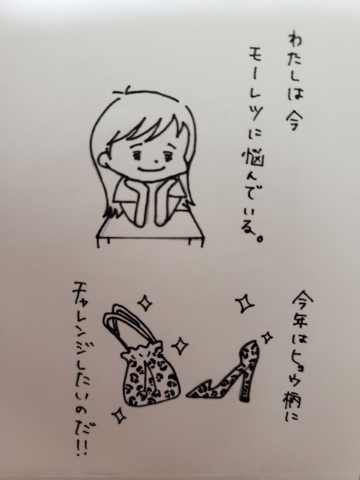 わたしは今
モーレツに悩んでいる。
今年はヒョウ柄に
チャレンジしたいのだ!!